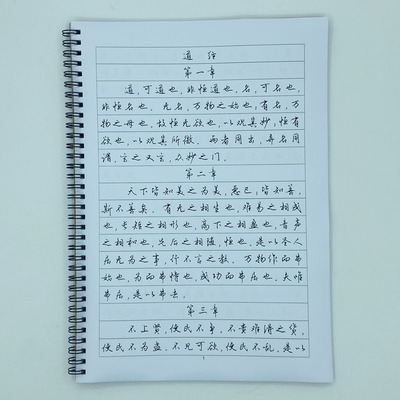 道经
第一章
道,可道也,非恒道也。名,可名也,
非恒名也。无名,万物之始也;有名,万
物之母也。故恒无欲也,以观其妙;恒有
欲也,以观其所徼。两者同出,异名同
谓,玄之又玄,众妙之门。
第二章
天下皆知美之为美,恶已;皆知善,
斯不善矣。有无之相生也,难易之相成
也,长短之相形也,高下之相盈也,音声
之相和也,先后之相随,恒也。是以圣人
居无为之事,行不言之教。万物作而弗
始也,为而弗恃也,成功而弗居也。夫唯
弗居,是以弗去。
第三章
不上贤,使民不争。不贵难得之货,
使民不为盗。不见可欲,使民不乱。是以
1